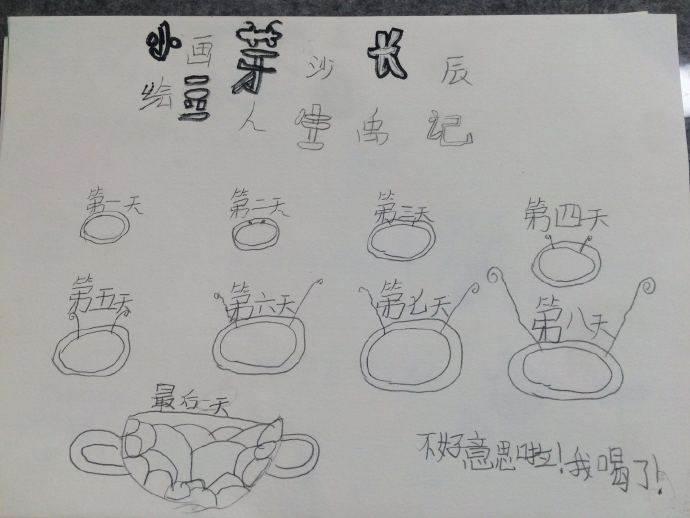 小画芽沙长辰
绘豆人生禹记
第一天 第二天 第三天 第四天
第五天 第六天 第七天 第八天
最后一天
不好意思啦！我喝了！